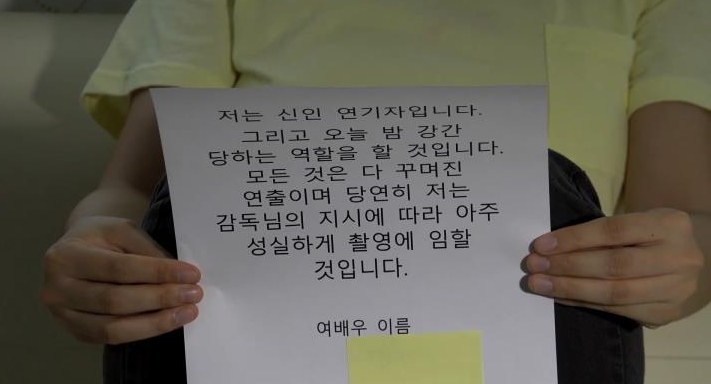 저는 신인 연기자입니다.
그리고 오늘 밤 강간
당하는 역할을 할 것입니다.
모든 것은 다 꾸며진
연출이며 당연히 저는
감독님의 지시에 따라 아주
성실하게 촬영에 임할
것입니다.
여배우 이름